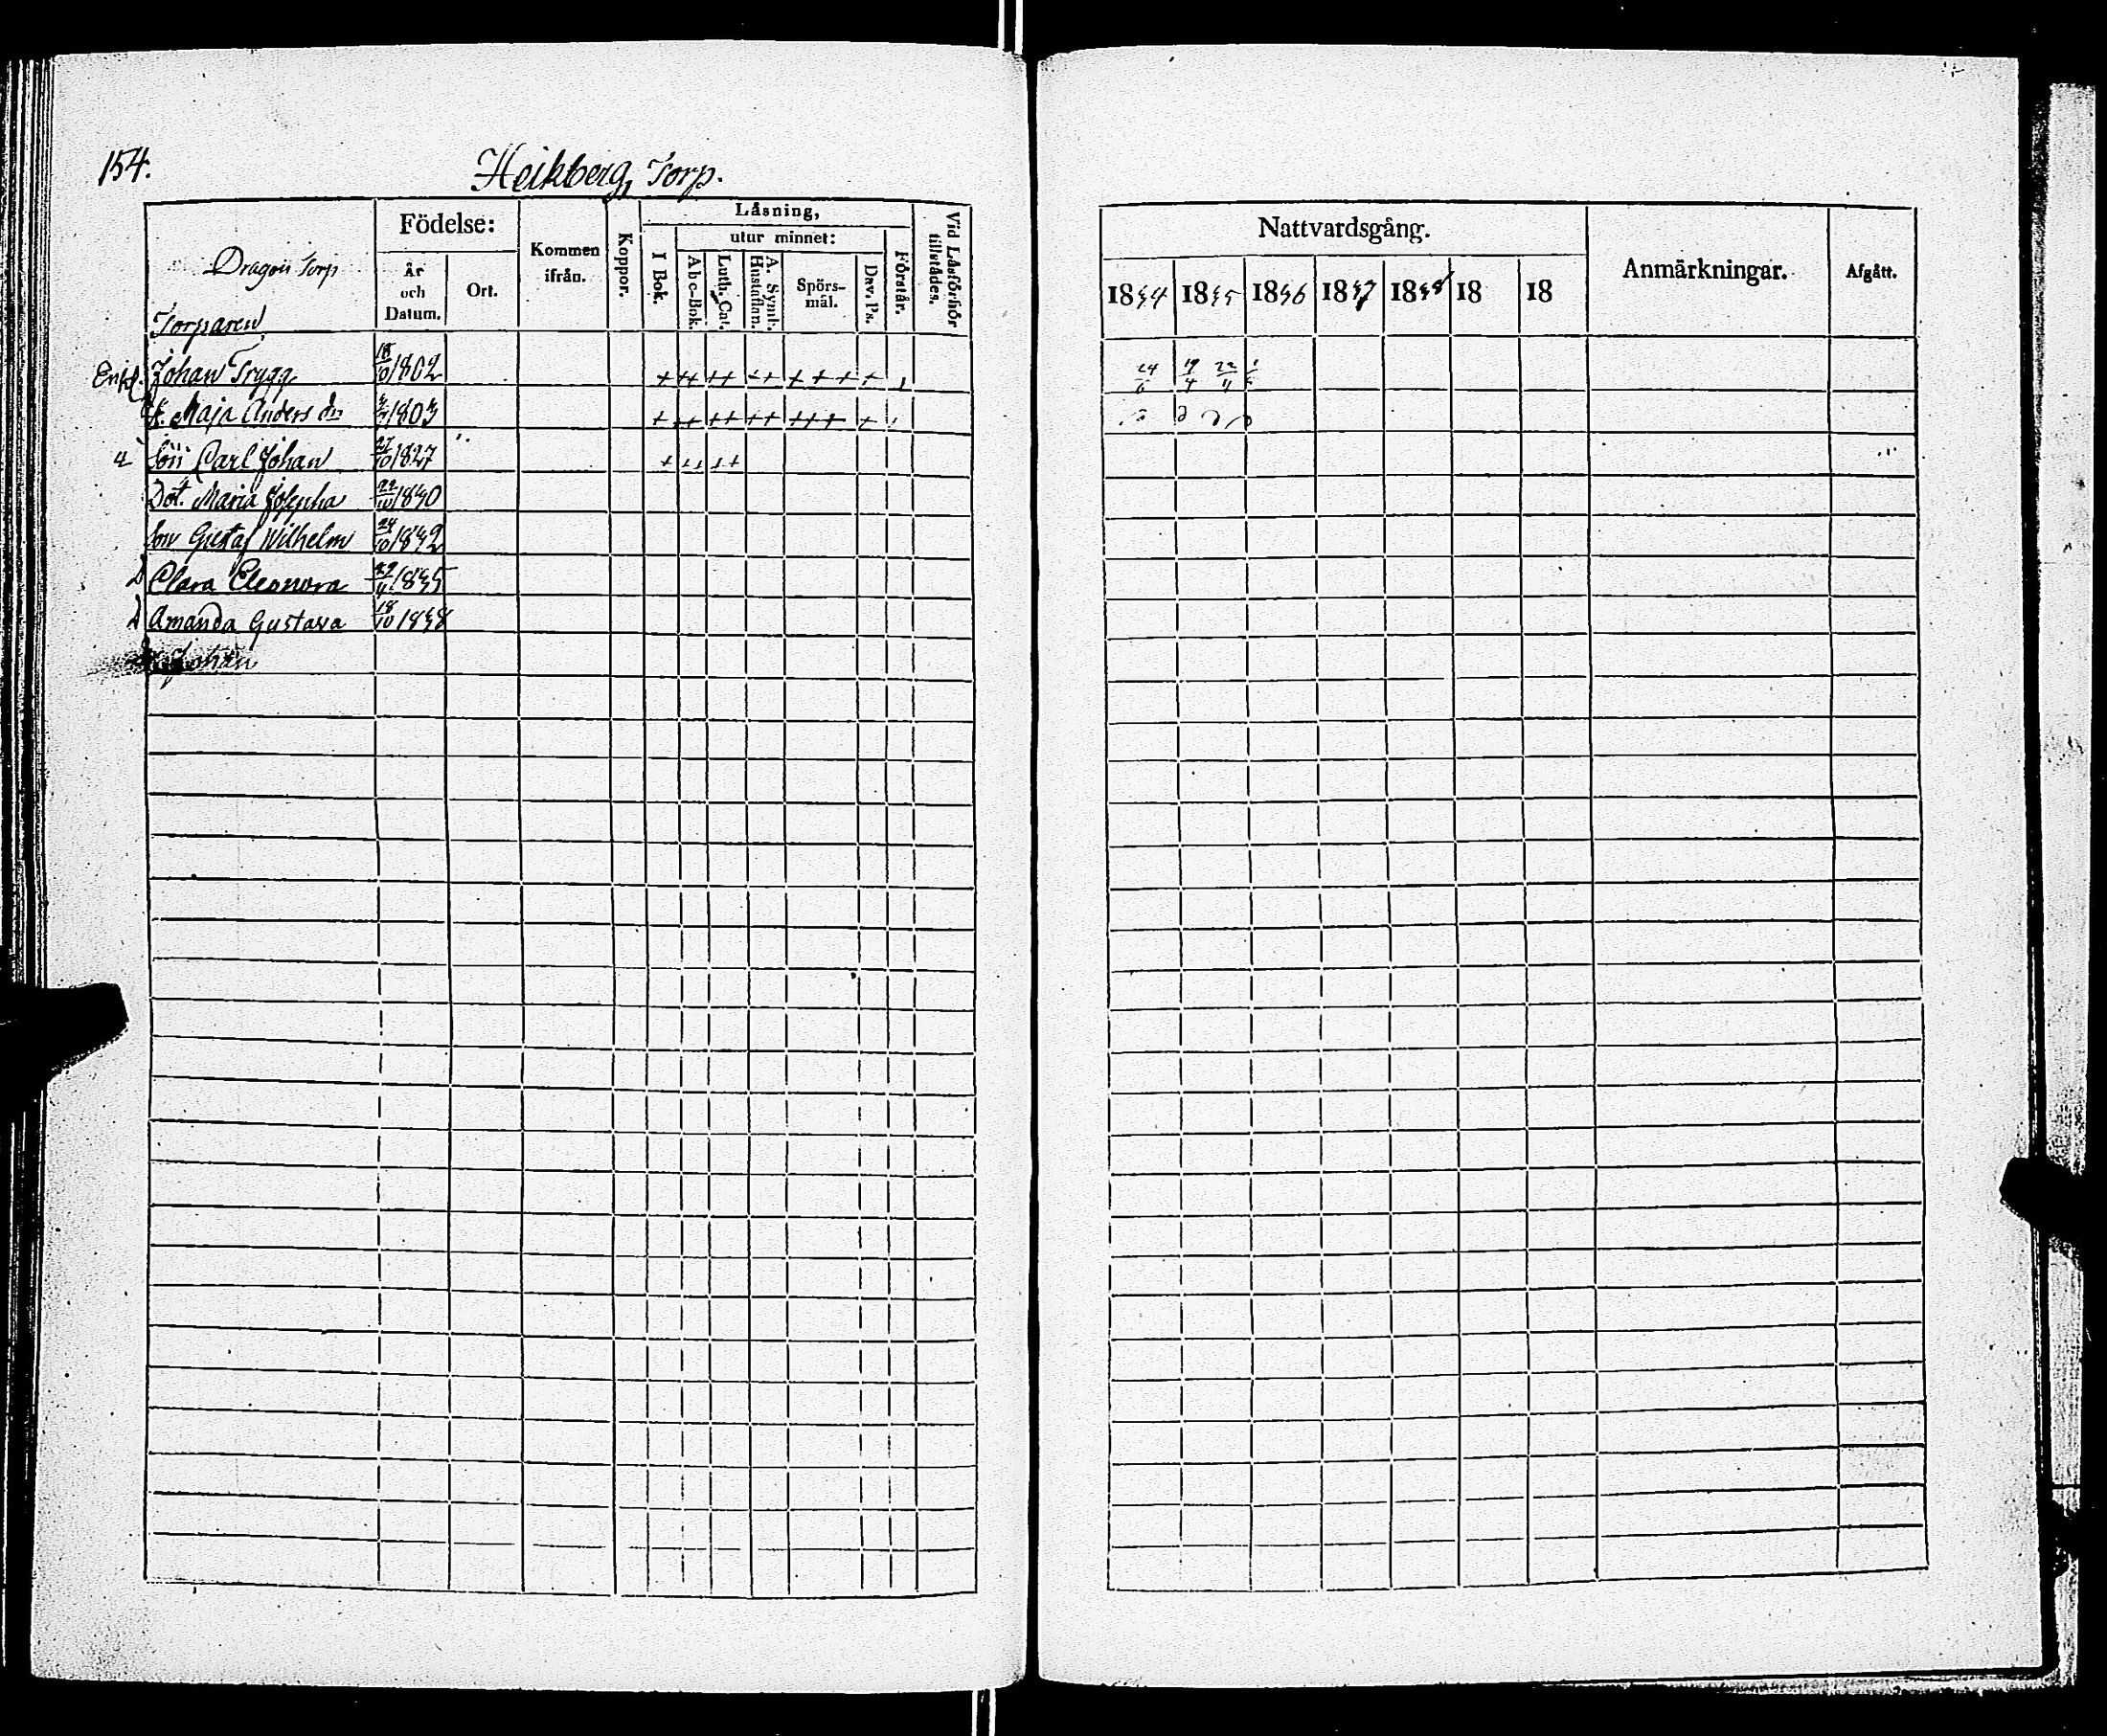 154.
Heikberg, Torp.
Dragon Torp
Torparen
Födelse:
År och Datum.
Ort.
Kommen ifrån.
Koppor.
Låsning,
I Bok.
utur minnet:
A b c-Bok.
Luth. Cat.
A. Symb. Hustaflan.
Spörsmål.
Dav. Ps.
Förstår.
Vid Låsförhör tillstådes.
Johan Trygg 18/10 1802 + ++ ++ ++ + + + +
H. Maja Anders dr 1803 + ++ ++ ++ +++ +
Son Carl Johan 27/10 1827 +
Dot. Maria Josepha 1830
Son Gustaf Wilhelm 24/10 1832
D Clara Eleonora 1835
D Amanda Gustava 18/10 1838
Johan
Nattvardsgång.
1834 1835 1836 1837 1838 18 18
Anmärkningar.
Afgått.
24/6 19/4 22/11